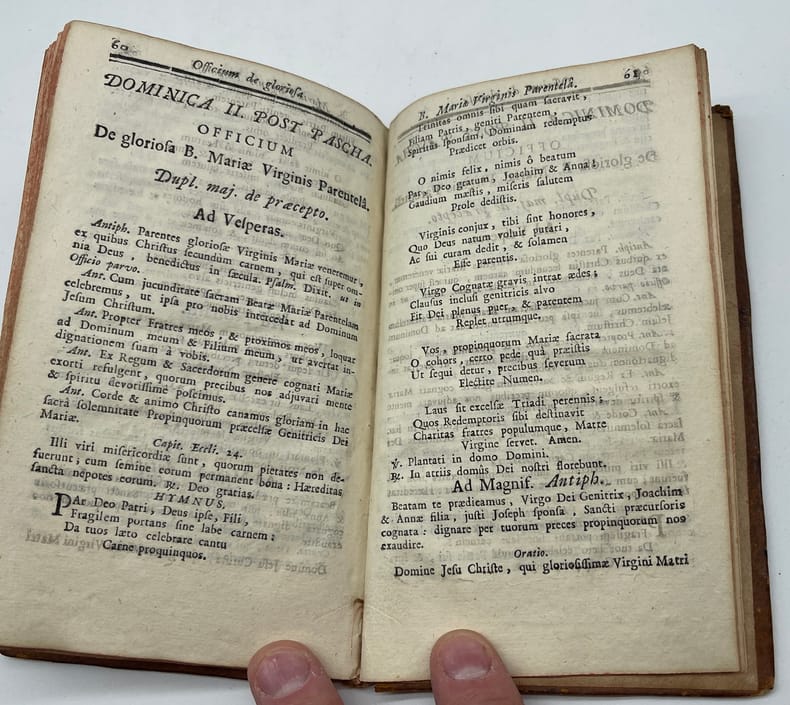 60
Officium de gloriosa
DOMINICA II. POST PASCHA.
OFFICIUM
De gloriosa B. Mariæ Virginis Parentelâ.
Dupl. maj. de præcepto.
Ad Vesperas.
Antiph. Parentes gloriosæ Virginis Mariæ veneremur,
ex quibus Christus secundum carnem, qui est super om-
nia Deus, benedictus in sæcula. Psalm. Dixit. ut in
Officio parvo.
Ant. Cum jucunditate sacram Beatæ Mariæ Parentelam
celebremus, ut ipsa pro nobis intercedat ad Dominum
Jesum Christum.
Ant. Propter Fratres meos, & proximos meos, loquar
ad Dominum meum & Filium meum, ut avertat in-
dignationem suam à vobis.
Ant. Ex Regum & Sacerdotum genere cognati Mariæ
exorti refulgent, quorum precibus nos adjuvari mente
& spiritu devotissimè poscimus.
Ant. Corde & animo Christo canamus gloriam in hac
sacra solemnitate Propinquorum præcelsæ Genitricis Dei
Mariæ.
Capit. Eccli. 24.
Illi viri misericordiæ sunt, quorum pietates non de-
fuerunt; cum semine eorum permanent bona: Hæreditas
sancta nepotes eorum. ℟. Deo gratias.
HYMNUS.
PAr Deo Patri, Deus ipse, Fili,
Fragilem portans sine labe carnem:
Da tuos læto celebrare cantu
Carne propinquos.
B. Mariæ Virginis Parentelâ. 61
Trinitas omnis sibi quam sacravit,
Filiam Patris, geniti Parentem,
Spiritus sponsam, Dominam redemptus
Prædicet orbis.
O nimis felix, nimis ô beatum
Par, Deo gratum, Joachim & Anna!
Gaudium mæstis, miseris salutem
Prole dedistis.
Virginis conjux, tibi sint honores,
Quo Deus natum voluit putari,
Ac sui curam dedit, & solamen
Esse parentis.
Virgo Cognatæ gravis intrat ædes;
Clausus inclusi genitricis alvo
Fit Dei plenus puer, & parentem
Replet utrumque.
Vos, propinquorum Mariæ sacrata
O cohors, certo pede quâ præistis
Ut sequi detur, precibus severum
Flectite Numen.
Laus sit excelsæ Triadi perennis;
Quos Redemptoris sibi destinavit
Charitas fratres populumque, Matre
Virgine servet. Amen.
℣. Plantati in domo Domini.
℟. In atriis domûs Dei nostri florebunt.
Ad Magnif. Antiph.
Beatam te prædicamus, Virgo Dei Genitrix, Joachim
& Annæ filia, justi Joseph sponsa, Sancti præcursoris
cognata: dignare per tuorum preces propinquorum nos
exaudire.
Oratio.
Domine Jesu Christe, qui gloriosissimæ Virgini Matri